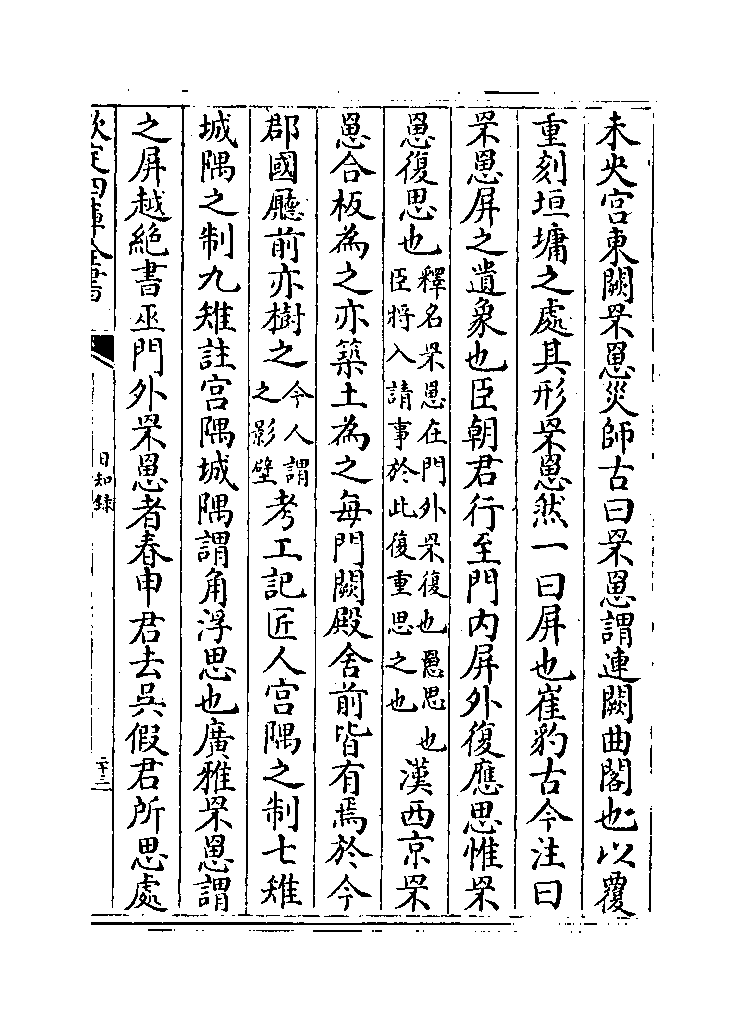 未央宫東闕罘罳災師古曰罘罳謂連闕曲閣也以覆
重刻垣墉之處其形罘罳然一曰屏也崔豹古今注曰
罘罳屏之遺象也臣朝君行至門内屏外復應思惟罘
罳復思也釋名罘罳在門外罘復也罳思也臣將入請事於此復重思之也漢西京罘
罳合板為之亦築土為之每門闕殿舍前皆有焉於今
郡國廳前亦樹之今人謂之影壁考工記匠人宫隅之制七雉
城隅之制九雉註宫隅城隅謂角浮思也廣雅罘罳謂
之屏越絶書巫門外罘罳者春申君去吳假君所思處
欽定四庫全書
日知録